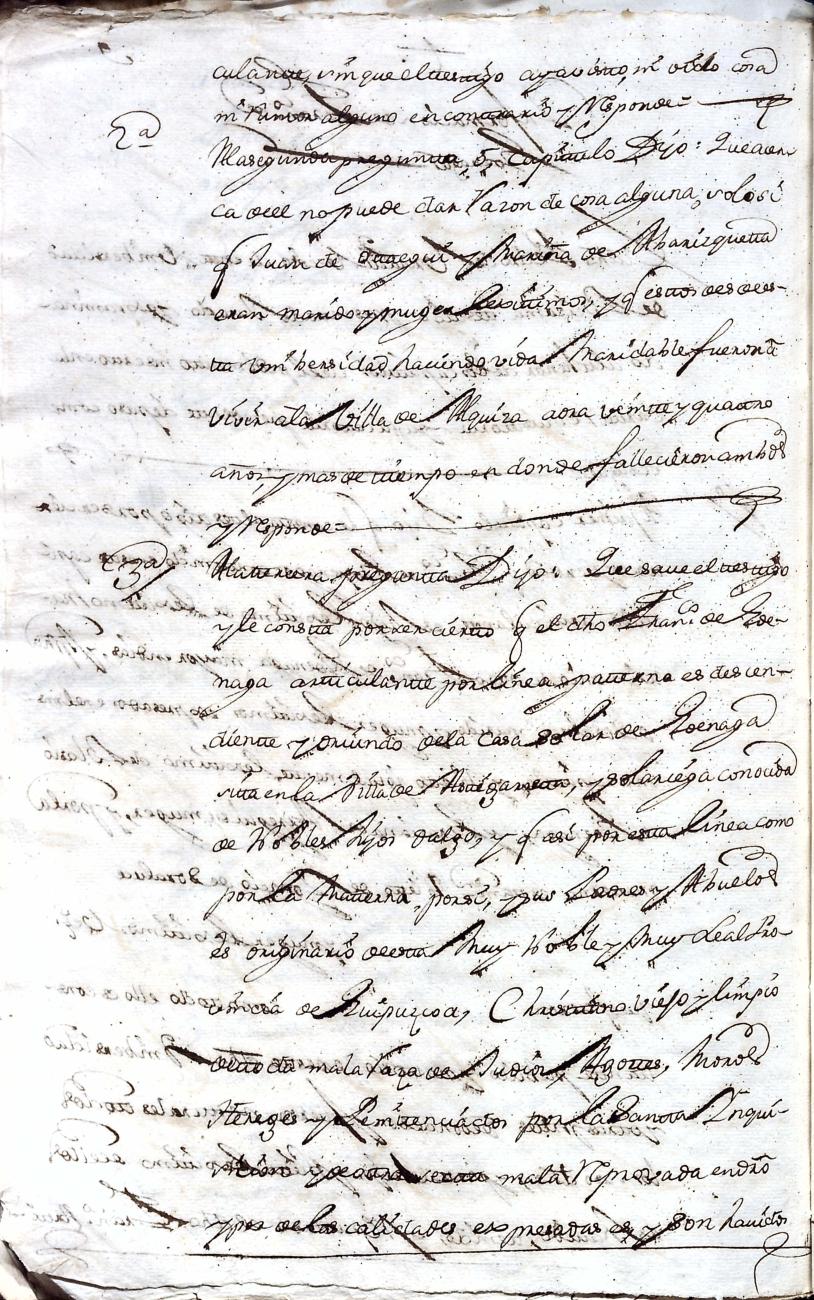 culante, sin que el testigo aya visto, ni oido cosa
ni rumor alguno en contrario y Responde
2a
A la segunda pregunta, o Capitulo Dijo: Que acer
ca de el no puede dar razon de cosa alguna, solo si
q Juan de y Marina de Abarizqueta
eran marido y muger lexitimos, y q estos desde es-
ta Vnibersidad haciendo vida Maridable fueron a
vivir a la Villa de Alquiza aora veinte y quatro
años y mas de tiempo en donde fallecieron ambos
y Responde
3a
A la tercera pregunta Dijo: Que save el testigo
y le consta por ser cierto q el dho Franco de Ede-
naga articulante por linea paterna es descen-
diente y oriundo de la Casa Solar de Edenaga
sita en la Villa de y solariega conocida
de Nobles hijos dalgo, y q asi por esta linea como
por la Materna, por si, y sus Padres y Abuelos
es originario de esta Muy Noble y Muy Leal Pro-
vincia de Guipuzcoa, Christiano viejo y limpio
de toda mala raza de Judios, Agotes, Moros
Hereges y Penitenciados por la Santa Inqui-
sicion y de otra secta mala Reprovada en dro
y por de las calidades expresadas es, y son havidos